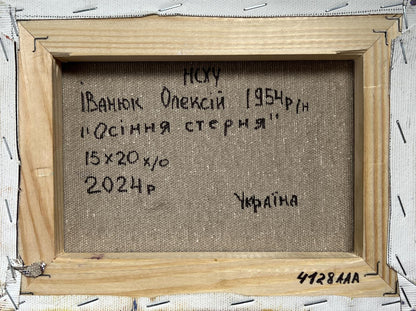 НСХУ
Іванюк Олексій 1954 р/н
"Осіння стерня"
15х20 х/о
2024р
Україна
4128ААА